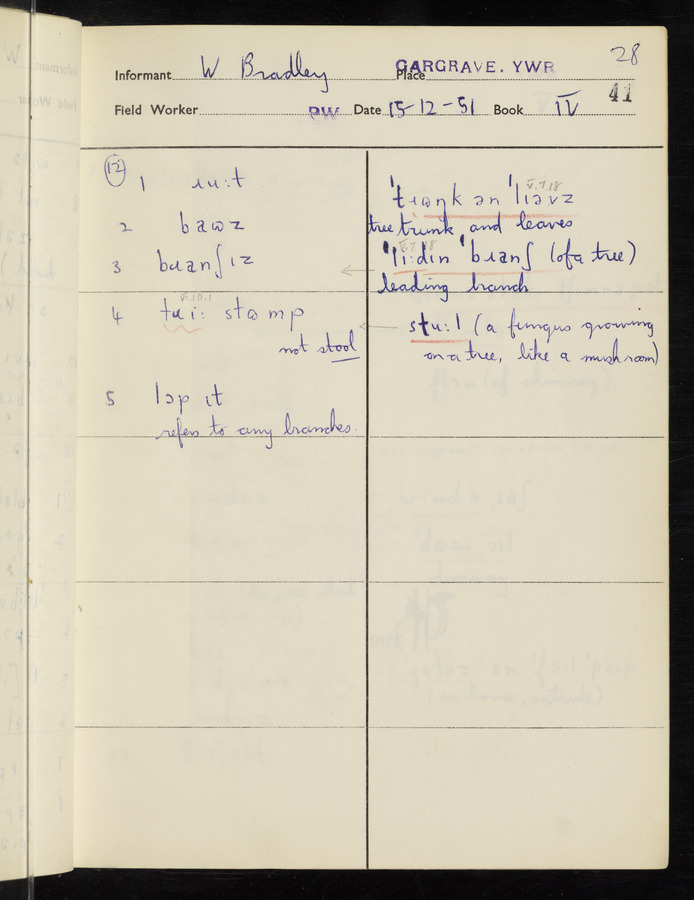 28
Informant W Bradley Place GARGRAVE. YWR
41
Field Worker PW Date 15-12-51 Book IV
12
1 ɹu:t
2 baɷz
3 bɹanʃɪz
V.10.1
4 tɹi: stɷmp
not stool
5 lɔp ɪt
refers to any branches.
V.7.18
ˈtɹɷŋk ən ˈlɪəvz
tree trunk and leaves
V.7.18
ˈli:dɪn ˈbɹanʃ (of a tree)
leading branch
stu:l (a fungus growing
on a tree, like a mushroom)